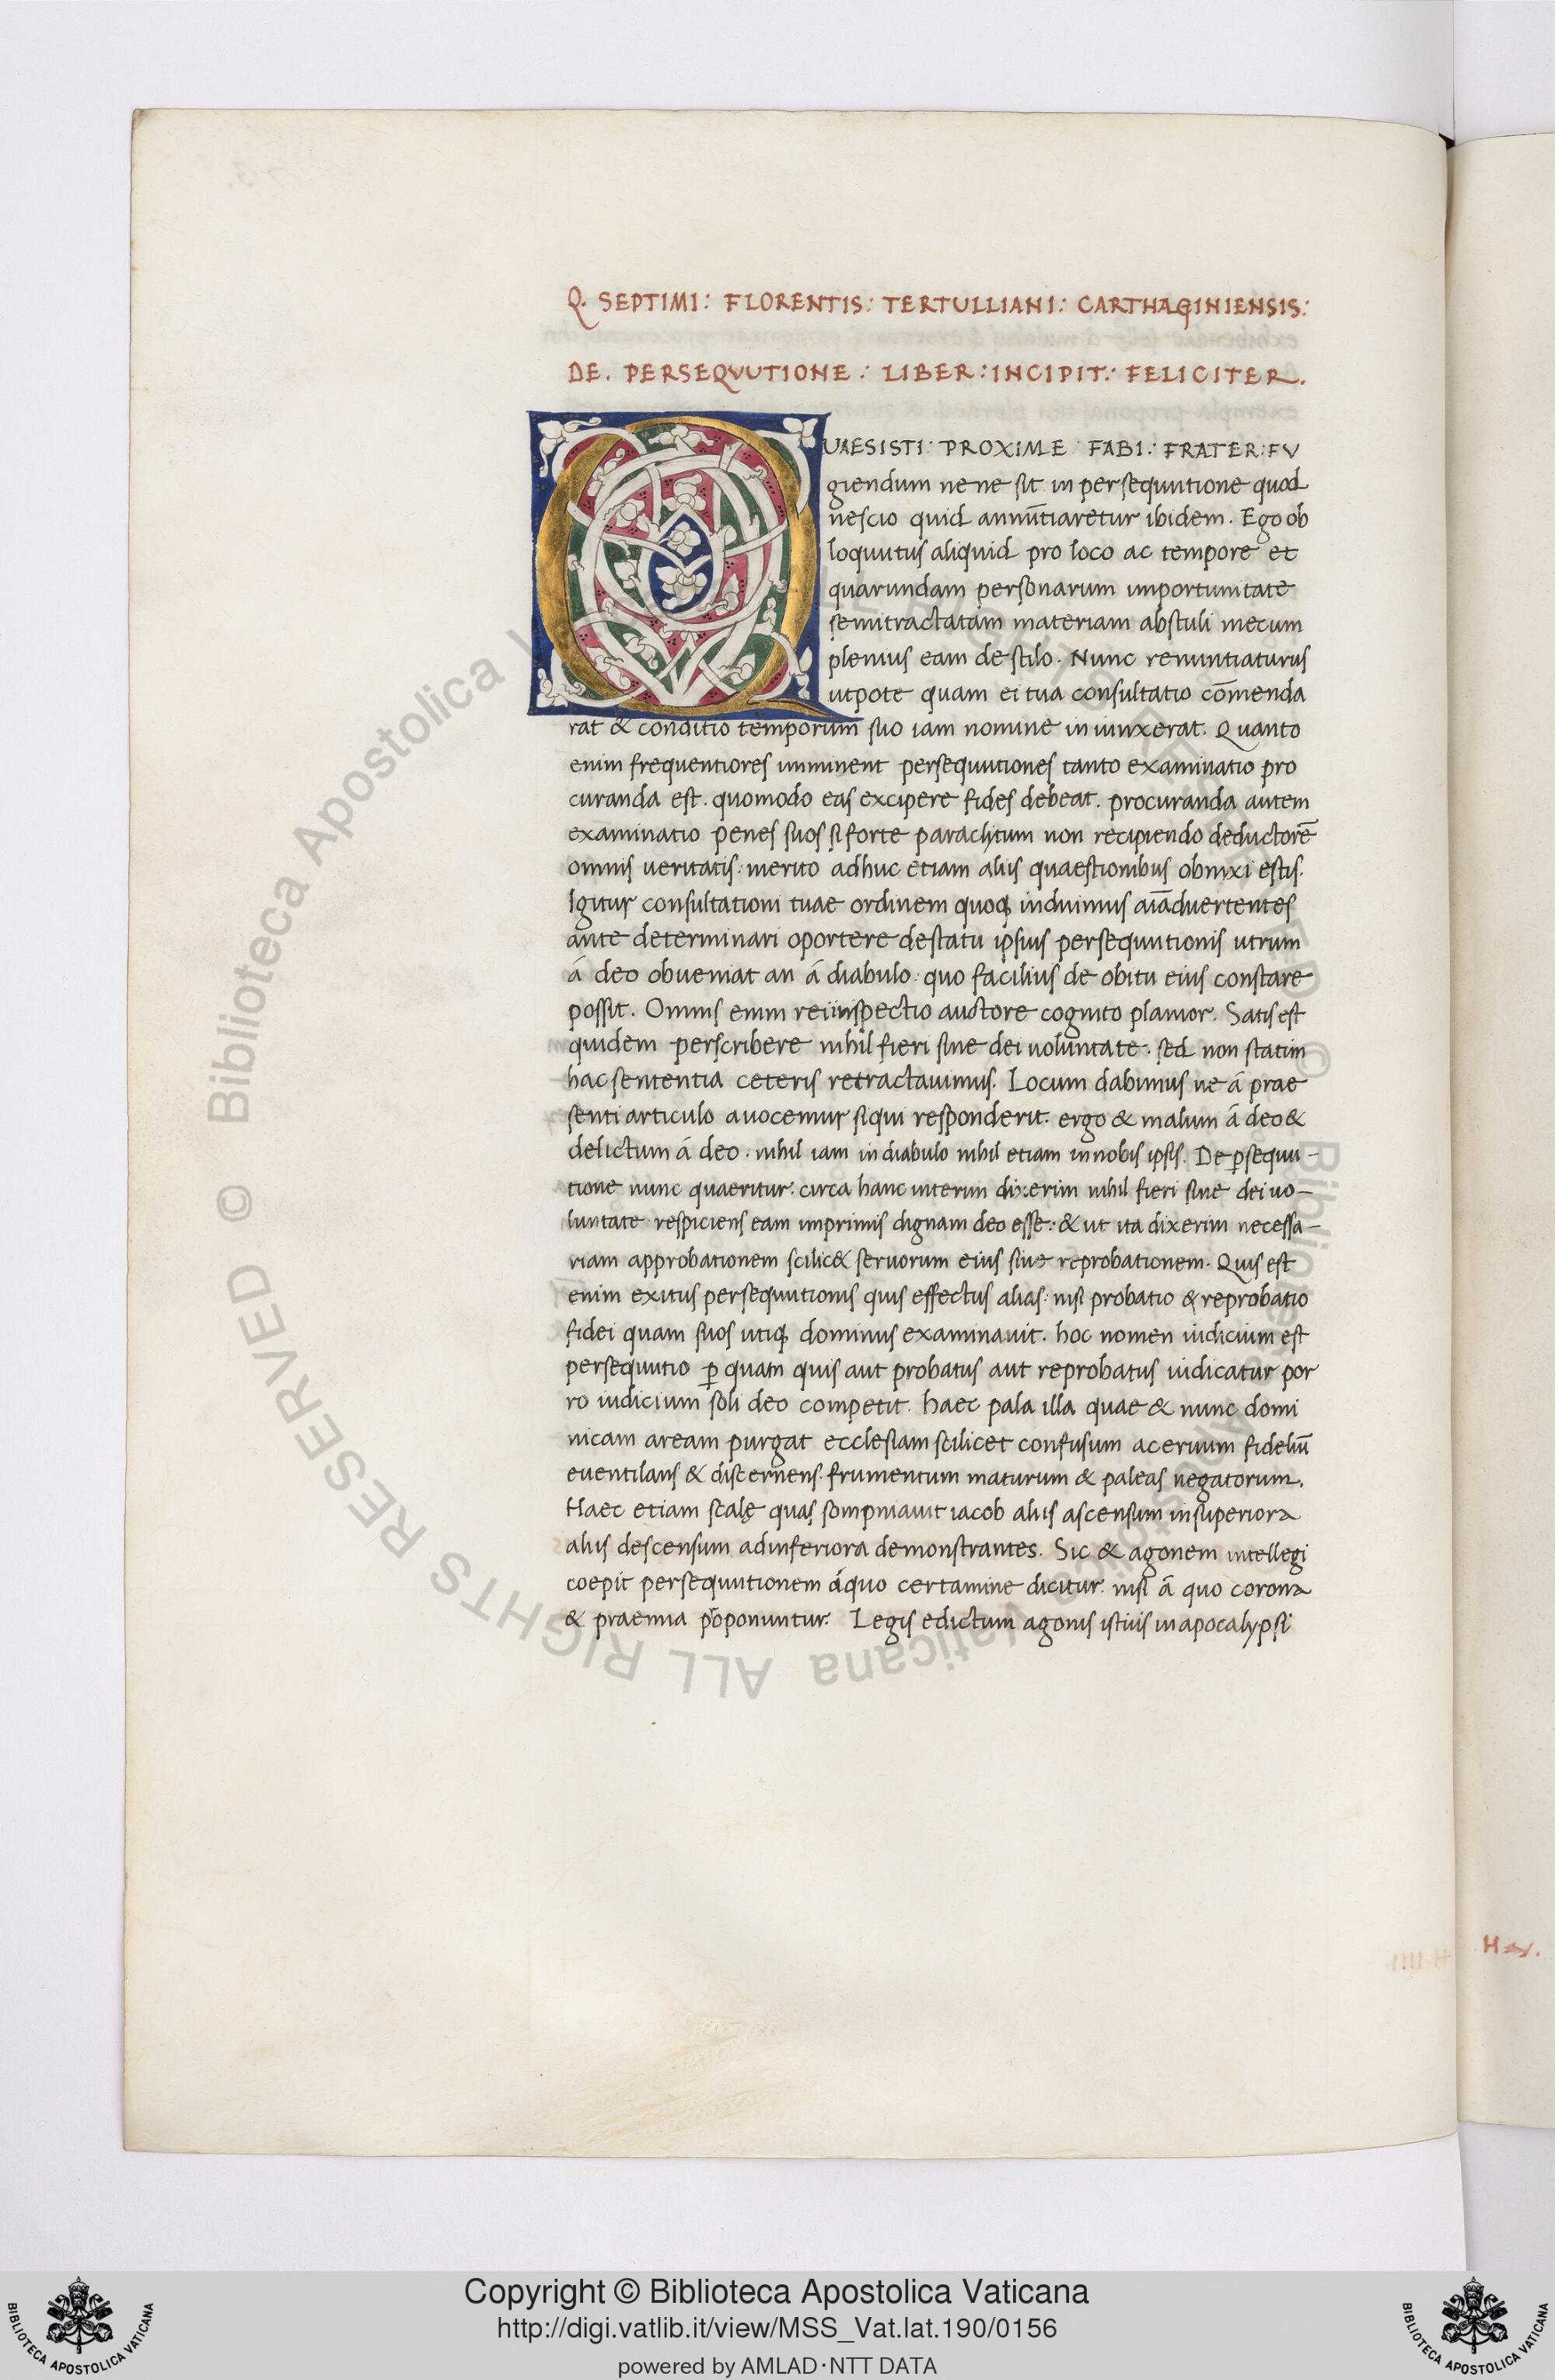 Q. SEPTIMI: FLORENTIS: TERTULLIANI: CARTHAGINIENSIS:
DE. PERSEQVUTIONE: LIBER: INCIPIT: FELICITER.
QUAESISTI: PROXIME FABI: FRATER: FV
giendum ne ne sit in persequutione quod
nescio quid annūtiaretur ibidem. Ego ob
loquutus aliquid pro loco ac tempore et
quarundam personarum importunitate
semitractatam materiam abstuli mecum
plenius eam de stilo. Nunc renuntiaturus
utpote quam ei tua consultatio cōmenda
rat & conditio temporum suo iam nomine in iunxerat. Quanto
enim frequentiores imminent persequutiones tanto examinatio pro
curanda est. quomodo eas excipere fides debeat. procuranda autem
examinatio penes suos si forte paraclytum non recipiendo deductorē
omnis veritatis. merito adhuc etiam aliis quaestionibus obnixi estis.
Igitur consultationi tuae ordinem quoq; induimus aīadvertentes
ante determinari oportere de statu ipsius persequutionis utrum
á deo obveniat an á diabulo. quo facilius de obitu eius constare
possit. Omnis enim rei inspectio auctore cognito planior. Satis est
quidem perscribere nihil fieri sine dei voluntate. sed non statim
hac sententia ceteris retractavimus. Locum dabimus ne á prae
senti articulo avocemur siqui responderit. ergo & malum á deo &
delictum á deo. nihil iam in diabulo nihil etiam in nobis ipsis. De p̱sequu-
tione nunc quaeritur. circa hanc interim dixerim nihil fieri sine dei vo-
luntate respiciens eam imprimis dignam deo esse: & ut ita dixerim necessa-
riam approbationem scilic& servorum eius sive reprobationem. Quis est
enim exitus persequutionis quis effectus alias: nisi probatio & reprobatio
fidei quam suos utiq; dominus examinavit. hoc nomen iudicium est
persequutio p̱ quam quis aut probatus aut reprobatus iudicatur por
ro iudicium soli deo competit. haec pala illa quae & nunc domi
nicam aream purgat ecclesiam scilicet confusum acervum fideliū
eventilans & discernens. frumentum maturum & paleas negatorum.
Haec etiam scalę quas sompniavit iacob aliis ascensum in superiora
aliis descensum ad inferiora demonstrantes. Sic & agonem intellegi
coepit persequutionem á quo certamine dicitur. nisi á quo corona
& praemia p̊oponuntur. Legis edictum agonis istius in apocalypsi
Copyright © Biblioteca Apostolica Vaticana
http://digi.vatlib.it/view/MSS_Vat.lat.190/0156
powered by AMLAD·NTT DATA
BIBLIOTECA APOSTOLICA VATICANA
BIBLIOTECA APOSTOLICA VATICANA